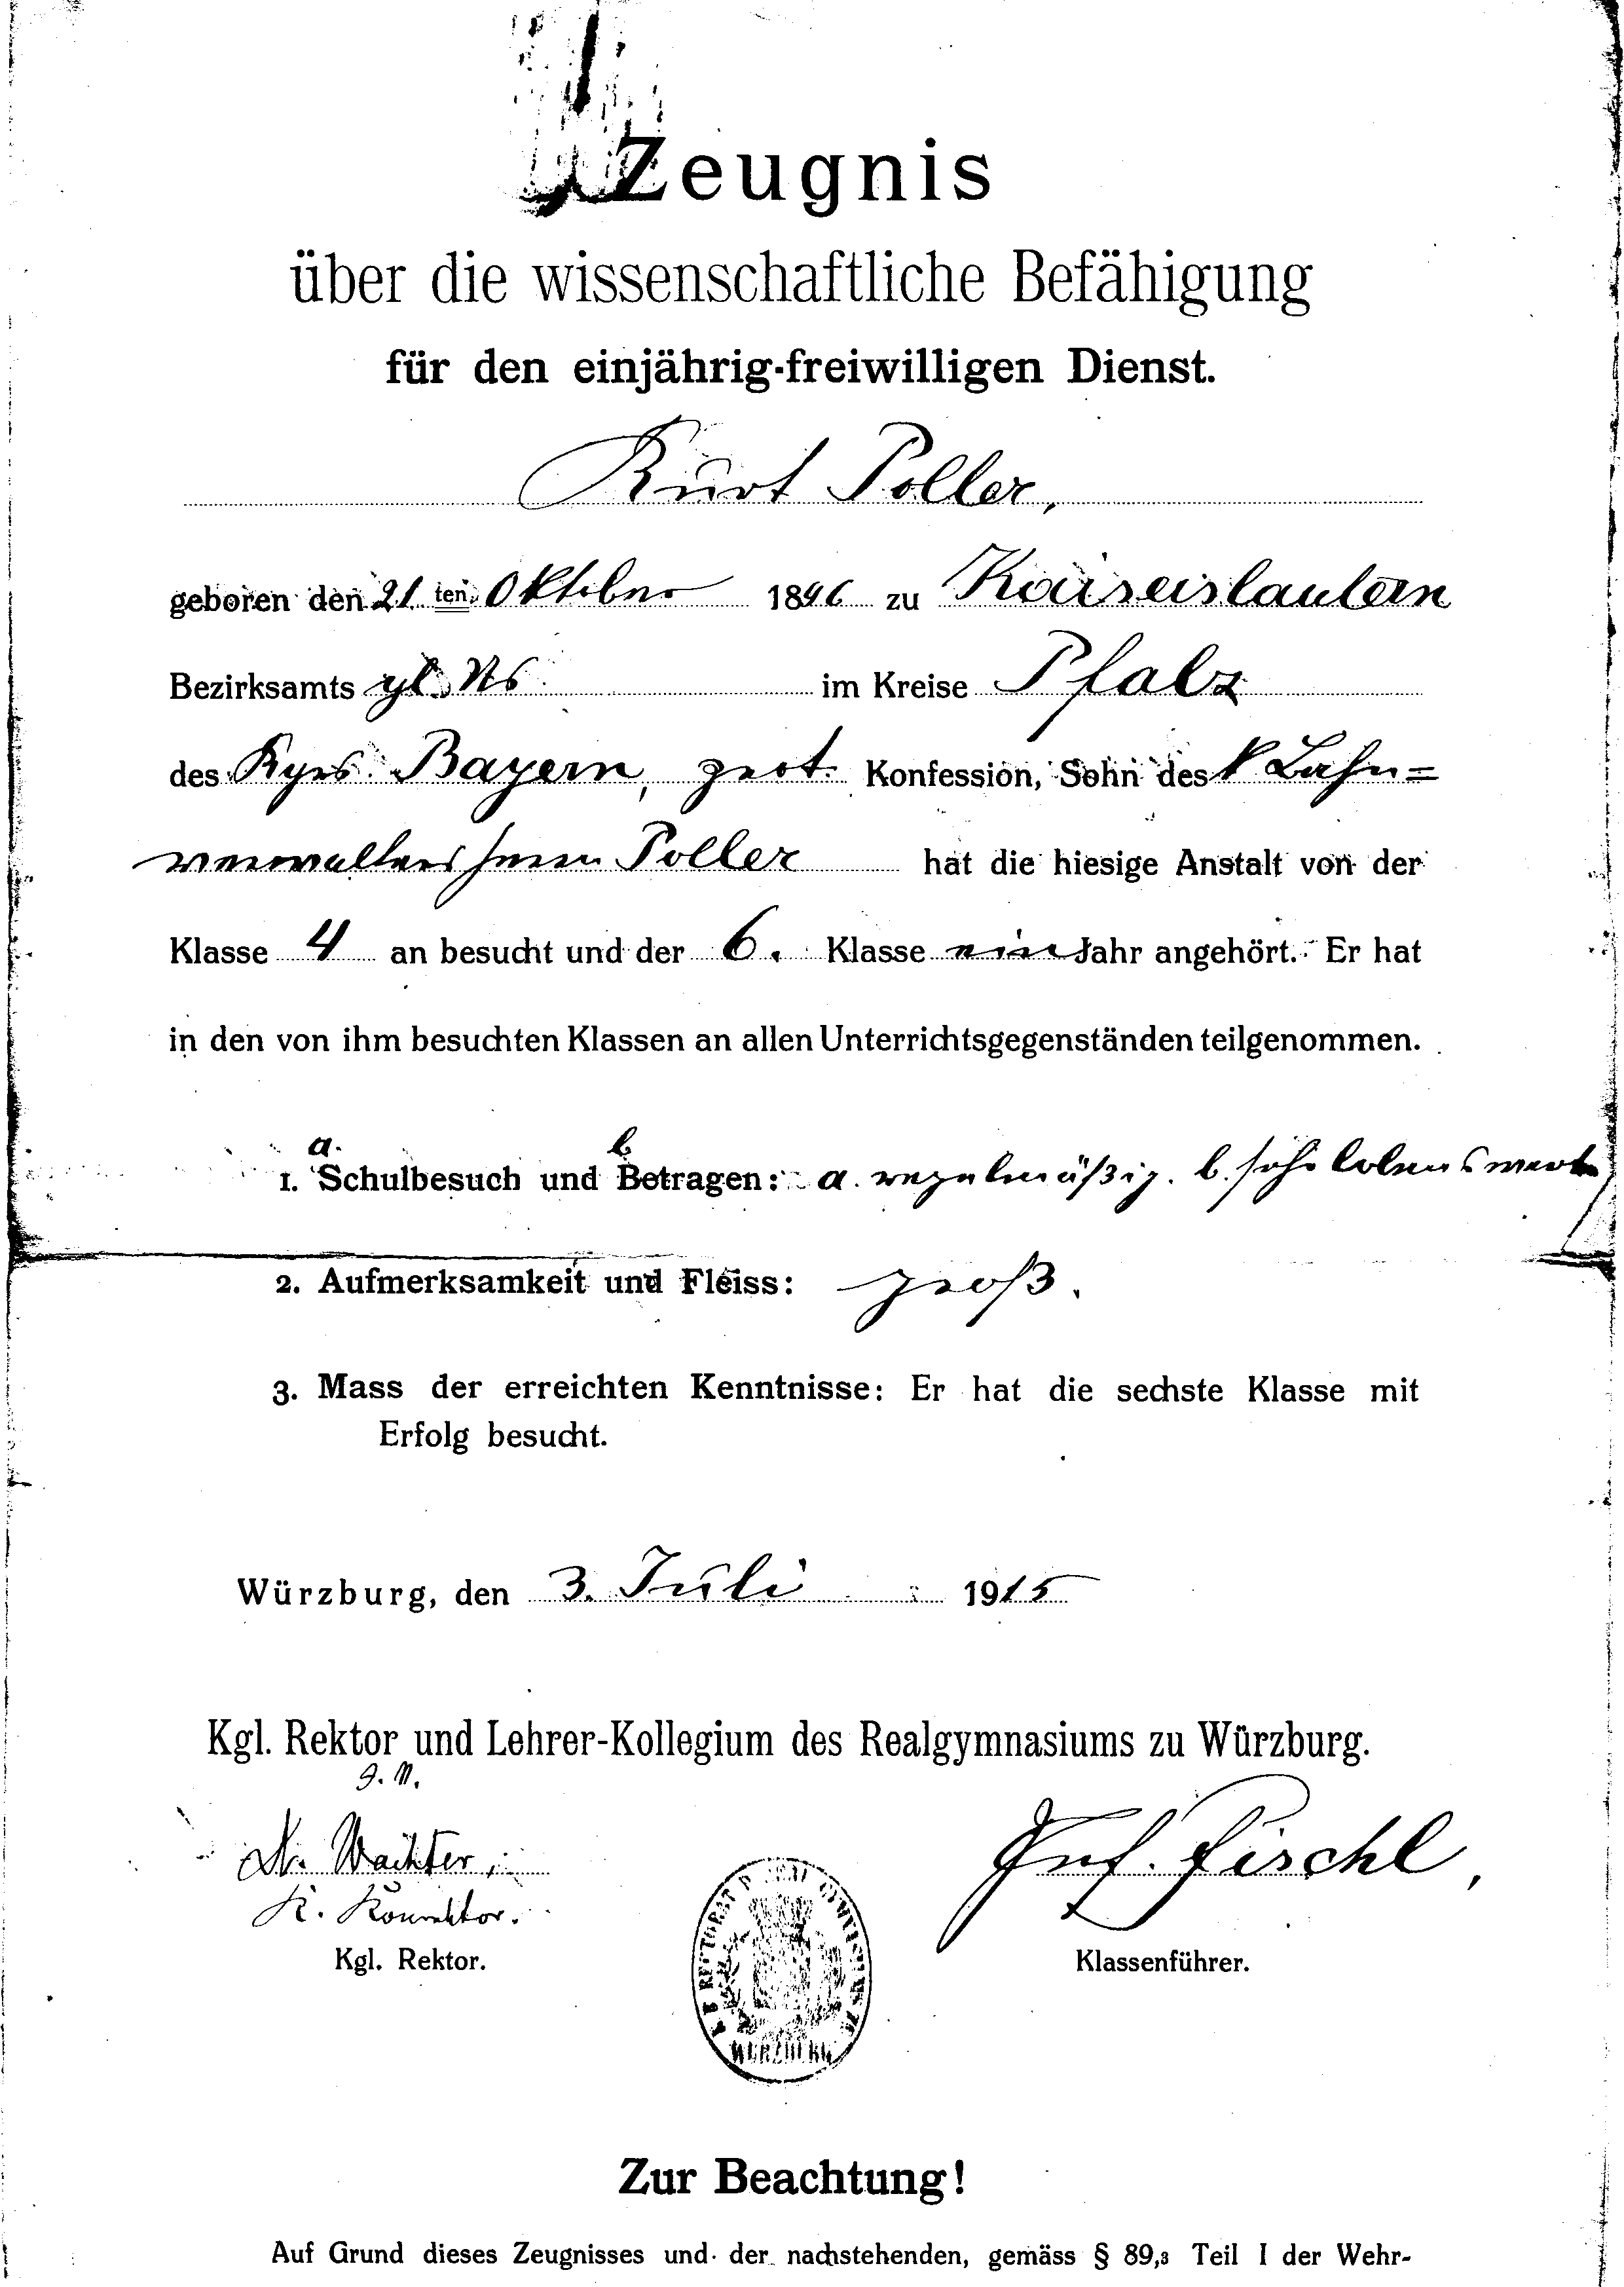 Zeugnis
über die wissenschaftliche Befähigung
für den einjährig-freiwilligen Dienst.
Kurt Poller,
geboren den 21ten Oktober 1896 zu Kaiserslautern
Bezirksamts gl. Ns im Kreise Pfalz
des Kgrs. Bayern, prot. Konfession, Sohn des k Bahn=
verwalters Herrn Poller hat die hiesige Anstalt von der
Klasse 4 an besucht und der 6. Klasse ein Jahr angehört. Er hat
in den von ihm besuchten Klassen an allen Unterrichtsgegenständen teilgenommen.
a. b
1. Schulbesuch und Betragen: a. regelmäßig. b. sehr lobenswert
2. Aufmerksamkeit und Fleiss: groß.
3. Mass der erreichten Kenntnisse: Er hat die sechste Klasse mit
Erfolg besucht.
Würzburg, den 3. Juli 1915
Kgl. Rektor und Lehrer-Kollegium des Realgymnasiums zu Würzburg.
J. V.
Dr. Wachter, Prof. Fischl,
K. Konrektor.
Kgl. Rektor. Klassenführer.
WÜRZBURG
Zur Beachtung!
Auf Grund dieses Zeugnisses und der nachstehenden, gemäss § 89,3 Teil I der Wehr-